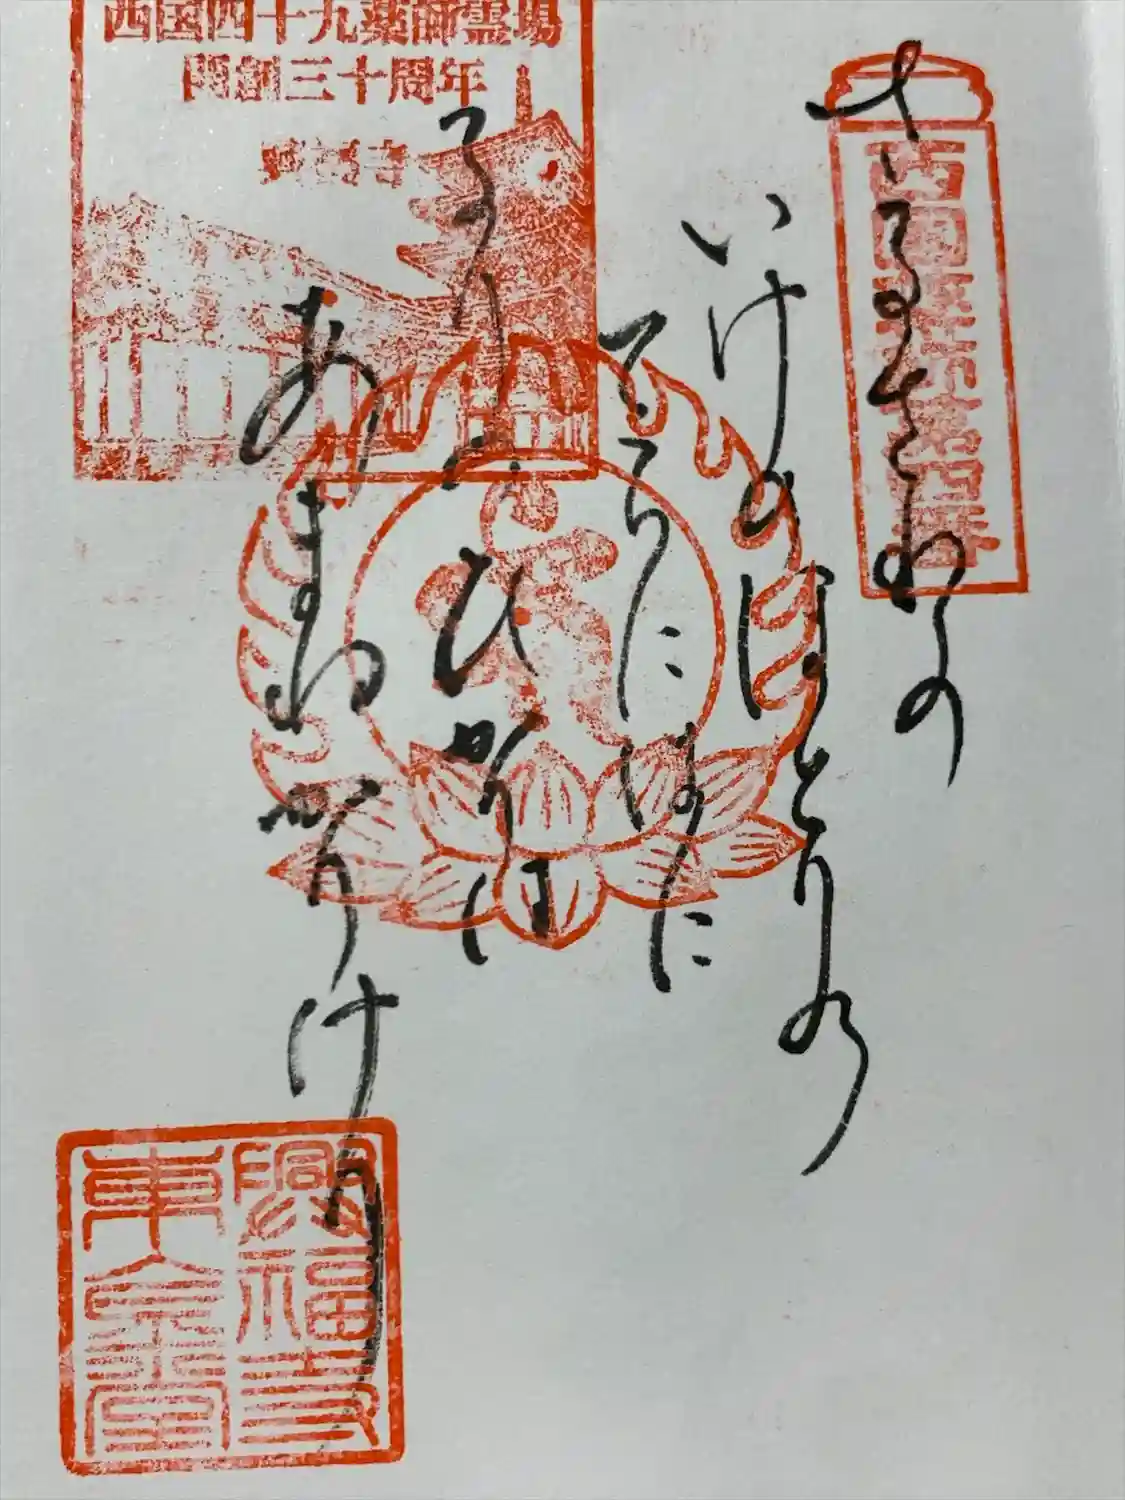 西国四十九薬師霊場
開創三十周年
興福寺
西国薬師第四番
さるさわの
いけのほとりの
るりのひかりは
あまねかりけり
興福寺
東金堂